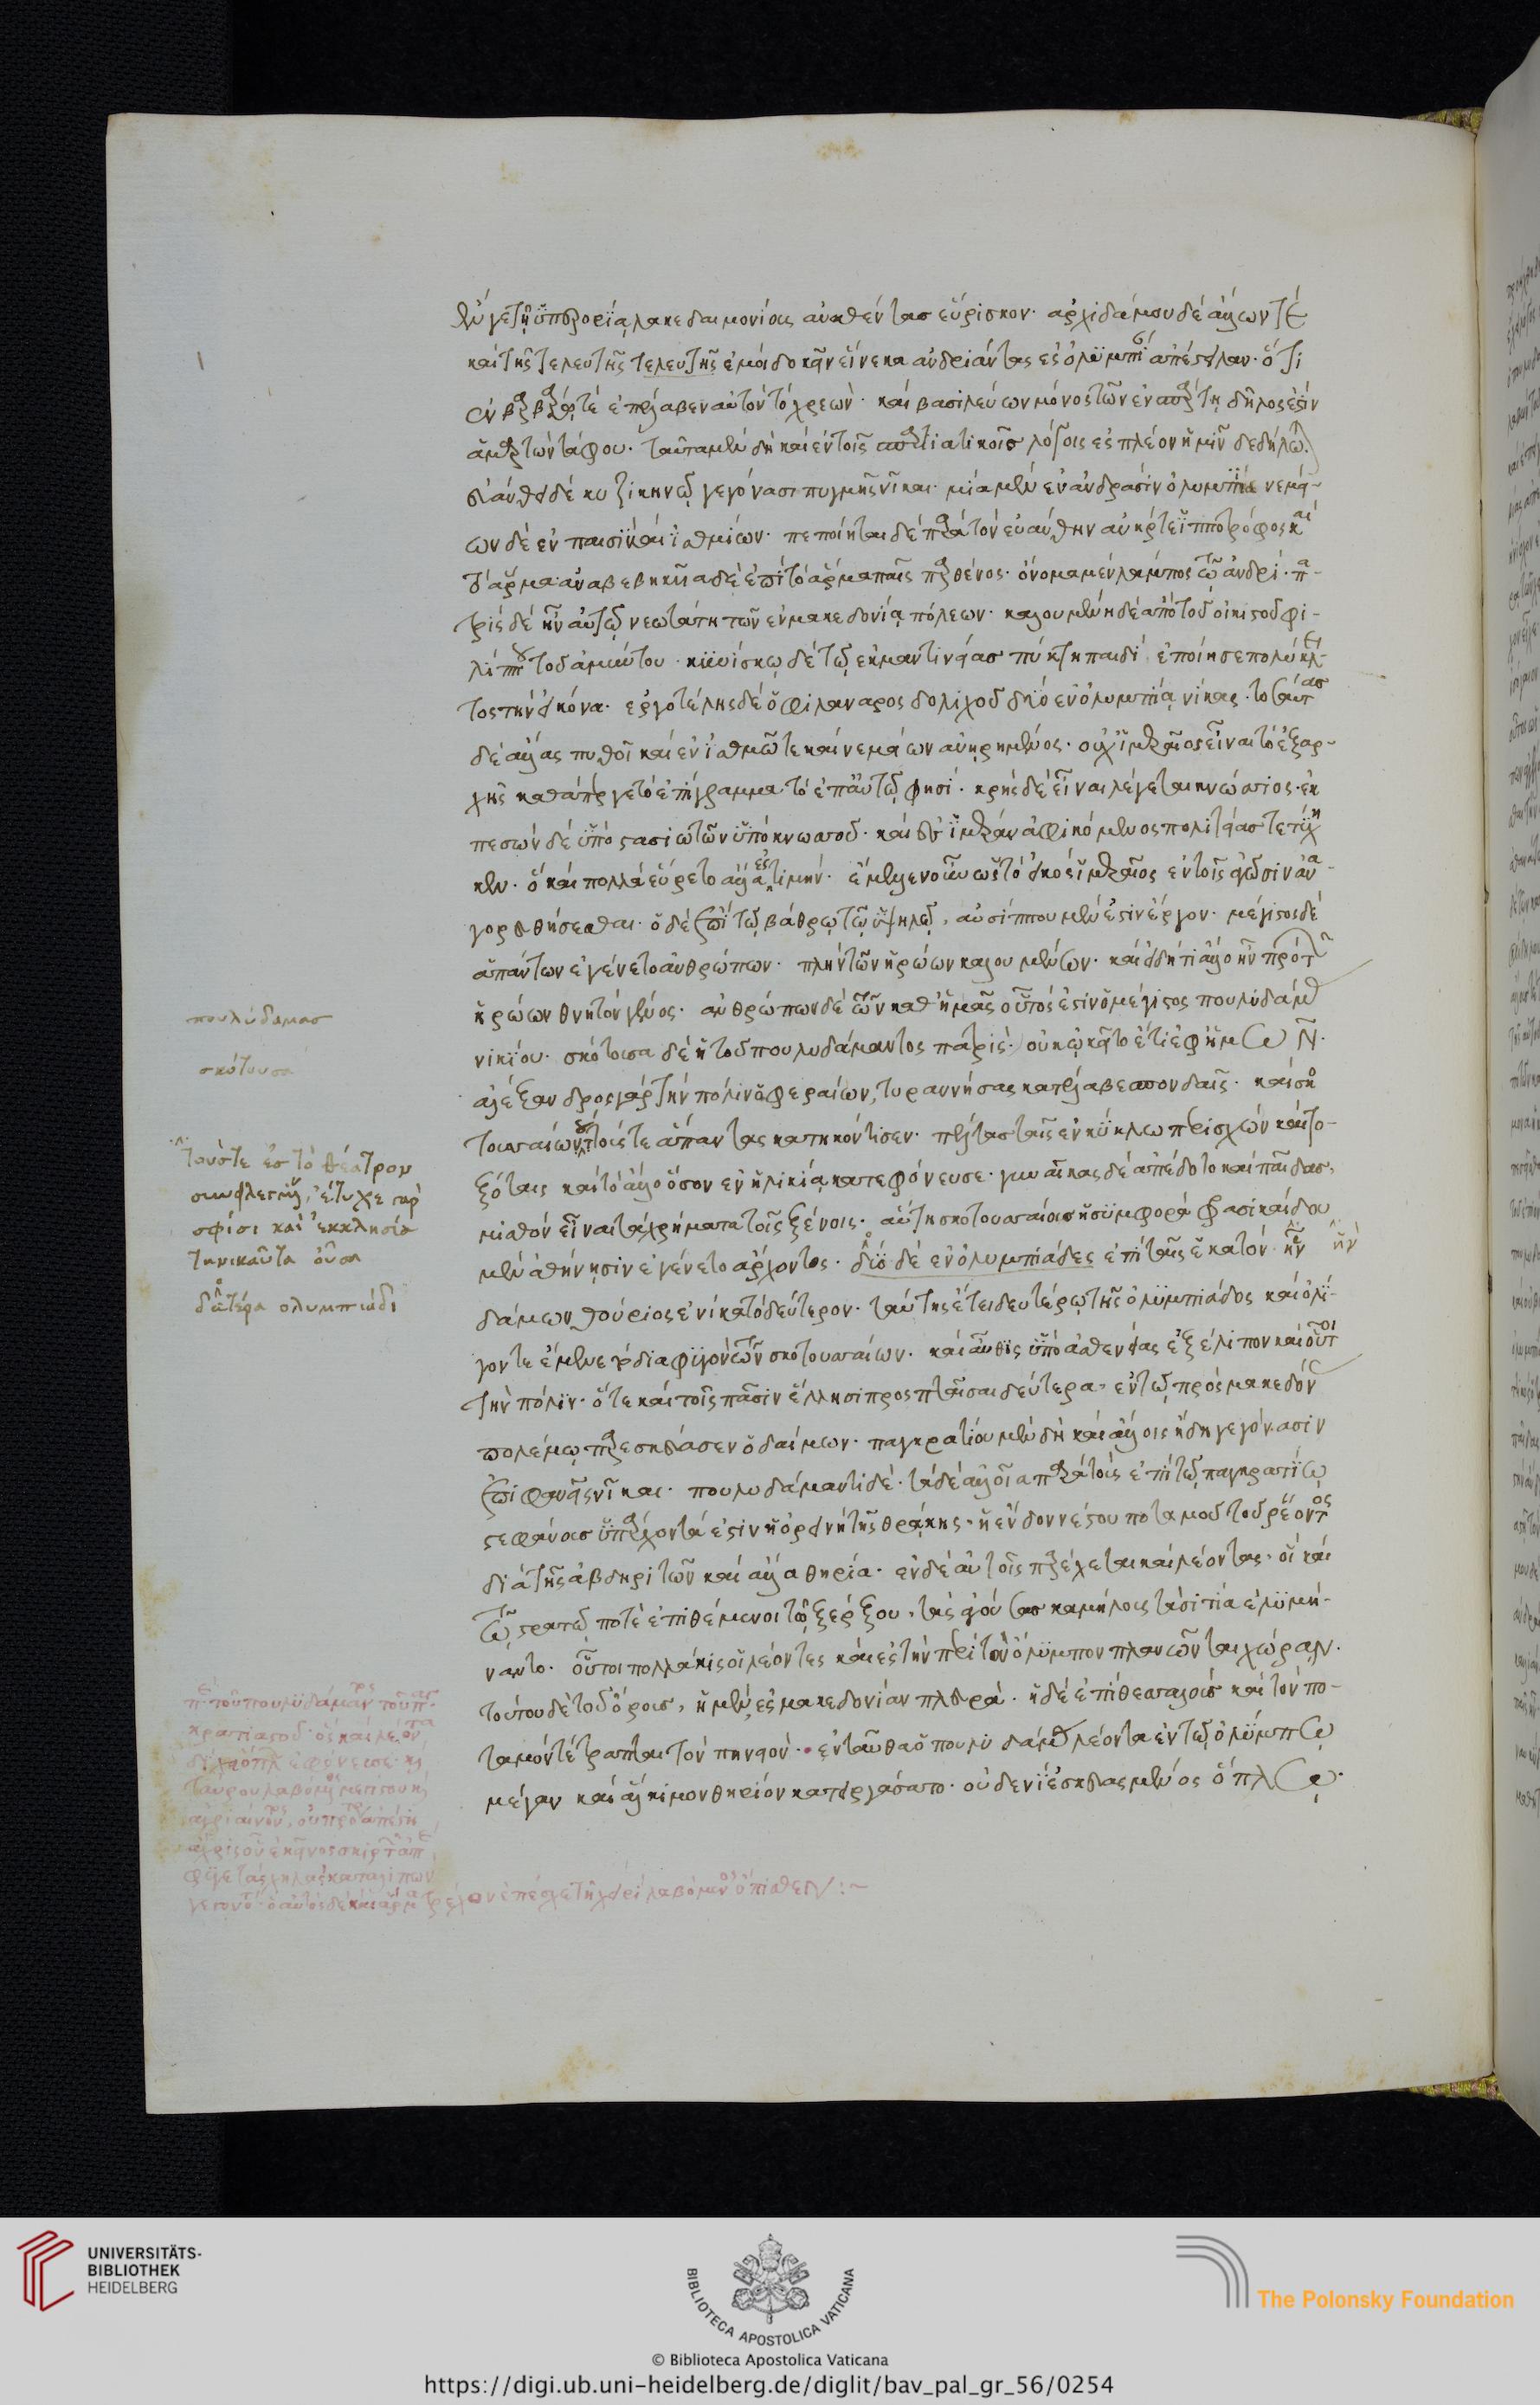 λύγετῆ ὑπερορία λακεδαιμονίοις αὐχθέντασ εὕρισκον· ἀρχιδάμου δὲ ἄλλων τε
καὶ τῆς τελευτῆς τελευτῆς ἐμοὶ δοκεῖν εἵνεκα ἀνδριάντας ἐς ὀλυμπίαν ἀπέστειλαν· ὅτι
ἐν βαρβάρῳ τε ἐπέλαβεν αὐτὸν τὸ χρεὼν· καὶ βασιλεύων μόνος τῶν ἐν σπάρτῃ δῆλος ἐστὶν
ἁμαρτὼν τάφου· ταῦτα μὲν δὴ καὶ ἐν τοῖς σπαρτιατικοῖσ λόγοις ἐς πλέον ἡμῖν δεδήλωται
εὐάνθει δὲ κυζικηνῷ γεγόνασι πυγμῆς νῖκαι· μία μὲν ἐν ἀνδράσιν ὀλυμπία νεμεί-
ων δὲ ἐν παισὶ καὶ ἰσθμίων· πεποίηται δὲ παρὰ τὸν εὐάνθην ἀνήρ τε ἱπποτρόφος καὶ
τὸ ἅρμα· ἀναβεβηκυῖα δὲ ἐπὶ τὸ ἅρμα παῖς παρθένος· ὄνομα μὲν λάμπος τῷ ἀνδρί· πα-
τρὶς δὲ ἦν αὐτῷ νεωτάτη τῶν ἐν μακεδονίᾳ πόλεων· καλουμένη δὲ ἀπὸ τοῦ οἰκιστοῦ φι-
λίππου τοῦ ἀμύντου· κυνίσκῳ δὲ τῷ ἐκ μαντινείασ πύκτῃ παιδὶ ἐποίησε πολύκλει-
τος τὴν εἰκόνα· ἐργοτέλης δὲ ὁ φιλάνορος δολιχοῦ δύο ἐν ὀλυμπίᾳ νίκας· τοσαύτασ
δὲ ἄλλας πυθοῖ καὶ ἐν ἰσθμῶ τε καὶ νεμείων ἀνῃρημένος· οὐχ ἱμεραῖος εἶναι τὸ ἐξαρ-
χῆς καθάπερ γε τὸ ἐπίγραμμα τὸ ἐπ' αὐτῷ φησὶ· κρὴς δὲ εἶναι λέγεται κνώσσιος· ἐκ
πεσὼν δὲ ὑπὸ στασιωτῶν ὑπὸ κνωσσοῦ· καὶ ἐς ἱμέραν ἀφικόμενος πολιτείασ τετύχη
κεν· ὃ καὶ πολλὰ εὕρετο ἄλλα ἐς τιμήν· ἔμελλεν οὖν ὡς τὸ εἰκὸς ἱμεραῖος ἐν τοῖς ἀγῶσιν ἀνα-
γορευθήσεσθαι· ὁ δὲ ἐπὶ τῷ βάθρῳ τῷ ὑψηλῷ, λυσίππου μέν ἐστιν ἔργον· μέγιστος δὲ
ἁπάντων ἐγένετο ἀνθρώπων· πλὴν τῶν ἡρώων καλουμένων· καὶ εἰ δή τι ἄλλο ἦν πρότ
ἡρώων θνητὸν γένος· ἀνθρώπων δὲ τῶν καθ' ἡμᾶς οὗτός ἐστιν ὁ μέγιστος πουλυδάμ
νικίου· σκότουσα δὲ ἡ τοῦ πουλυδάμαντος πατρὶς· οὐκ ᾠκεῖτο ἔτι ἐφ' ἡμῶν·
ἀλέξανδρος γὰρ τὴν πόλιν ὁ φεραίων, τυραννήσας κατέλαβε σπονδαῖς· καὶ σκο
τουσσαίων τούς τε ἅπαντας κατηκόντισεν· πελτασταῖς ἐν κύκλω περισχὼν καὶ το-
ξόταις καὶ τὸ ἄλλο ὅσον ἐν ἡλικίᾳ κατεφόνευσε· γυναῖκας δὲ ἀπέδοτο καὶ παῖδας,
μισθὸν εἶναι τὰ χρήματα τοῖς ξένοις· αὕτη σκοτουσσαίοισ ἡ συμφορὰ φρασικλείδου
μὲν ἀθήνησιν ἐγένετο ἄρχοντος· δύο δὲ ἐν ὀλυμπιάδες ἐπὶ ταῖς ἑκατόν· ἣν
δάμων θούριος ἐνίκα τὸ δεύτερον· ταύτης ἔτει δευτέρῳ τῆς ὀλυμπιάδος καὶ ὀλί-
γον τε ἔμεινε τὸ διαφυγὸν τῶν σκοτουσσαίων· καὶ αὖθις ὑπὸ ἀσθενείας ἐξέλιπον καὶ οὗτοι
τὴν πόλιν· ὅτε καὶ τοῖς πᾶσιν ἕλλησι προσπταῖσαι δεύτερα, ἐν τῷ πρὸς μακεδόν
πολέμῳ παρεσκεύασεν ὁ δαίμων· παγκρατίου μὲν δὴ καὶ ἄλλοις ἤδη γεγόνασιν
ἐπιφανεῖς νῖκαι· πουλυδάμαντι δὲ· τάδε ἀλλοῖα παρὰ τοὺς ἐπὶ τῷ παγκρατίῳ
στεφάνοισ ὑπάρχοντά ἐστιν ἡ ὀρεινὴ τῆς θράκης· ἡ ἔνδον νέστου ποταμοῦ τοῦ ῥέοντος
διὰ τῆς ἀβδηριτῶν καὶ ἄλλα θηρία· ἐν δὲ αὐτοῖς παρέχεται καὶ λέοντας· οἳ καὶ
τῷ στρατῷ ποτὲ ἐπιθέμενοι τῷ ξέρξου· τὰς ἀγούσασ καμήλοις τὰ σιτία ἐλυμή-
ναντο· οὗτοι πολλάκις οἱ λέοντες καὶ ἐς τὴν περὶ τὸν ὄλυμπον πλανῶνται χώραν·
τούτου δὲ τοῦ ὄρους, ἡ μὲν ἐς μακεδονίαν πλευρὰ· ἡ δὲ ἐπὶ θεσσαλοὺς καὶ τὸν πο-
ταμὸν τέτραπται τὸν πηνειὸν· ἐνταῦθα ὁ πουλυδάμ λέοντα ἐν τῷ ὀλύμπῳ
μέγαν καὶ ἄλκιμον θηρίον κατειργάσατο· οὐδενὶ ἐσκευασμένος ὅπλῳ·
πουλύδαμασ
σκότουσα
τούστε ἐσ τὸ θέατρον
συνφλεγεῖν, ἔτυχε γάρ
σφίσι καὶ ἐκκλησία
τηνικαῦτα οὖσα
δευτέρα ολυμπιάδι
ἣν
UNIVERSITÄTS-
BIBLIOTHEK
HEIDELBERG
BIBLIOTECA APOSTOLICA VATICANA
The Polonsky Foundation
© Biblioteca Apostolica Vaticana
https://digi.ub.uni-heidelberg.de/diglit/bav_pal_gr_56/0254